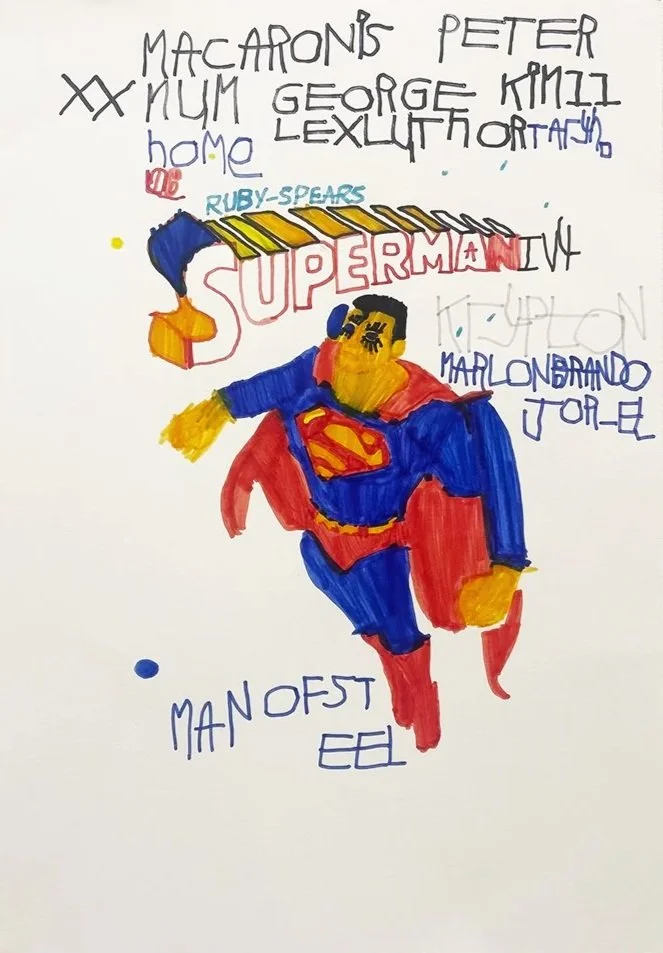 MACARONiS PETER
XX NUM GEORGE KiM11
LEXLUTHOR
hoMe
RUBY-SPEARS
SUPERMAN IV
MARLONBRANDO
JOR-EL
MAN OF ST
EEL